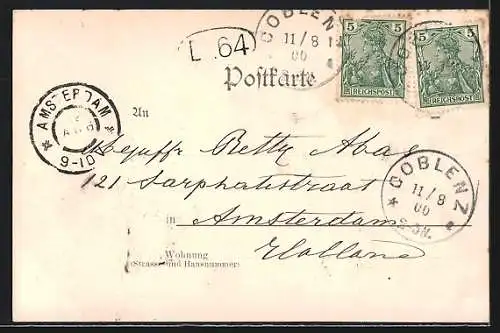 COBLENZ
11/8
00
L. 64
5 5
REICHSPOST
5 5
REICHSPOST
Postkarte
AMSTERDAM
9-10V
An
Mejuffr Betty Abas
121 Sarphatistraat
COBLENZ
11/8
00
in Amsterdam
Holland
Wohnung
(Strasse und Hausnummer)